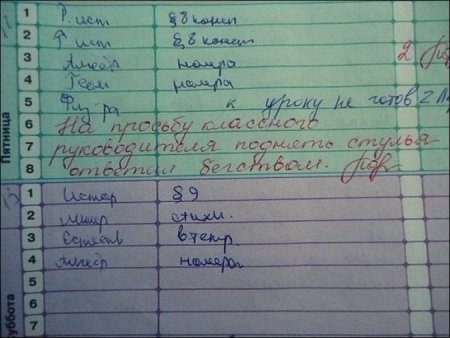 Пятница
1 Р. ист § 8 конец
2 Р ист § 8 конец
3 Алгебр номера 2
4 Геом номера
5 Физ-ра к уроку не готов 2
6 На просьбу классного
7 руководителя поднять стулья
8 ответил бегством.
Суббота
1 Истор § 9
2 Литер стихи.
3 Естеств в тетр.
4 Алгебр номера
5
6
7